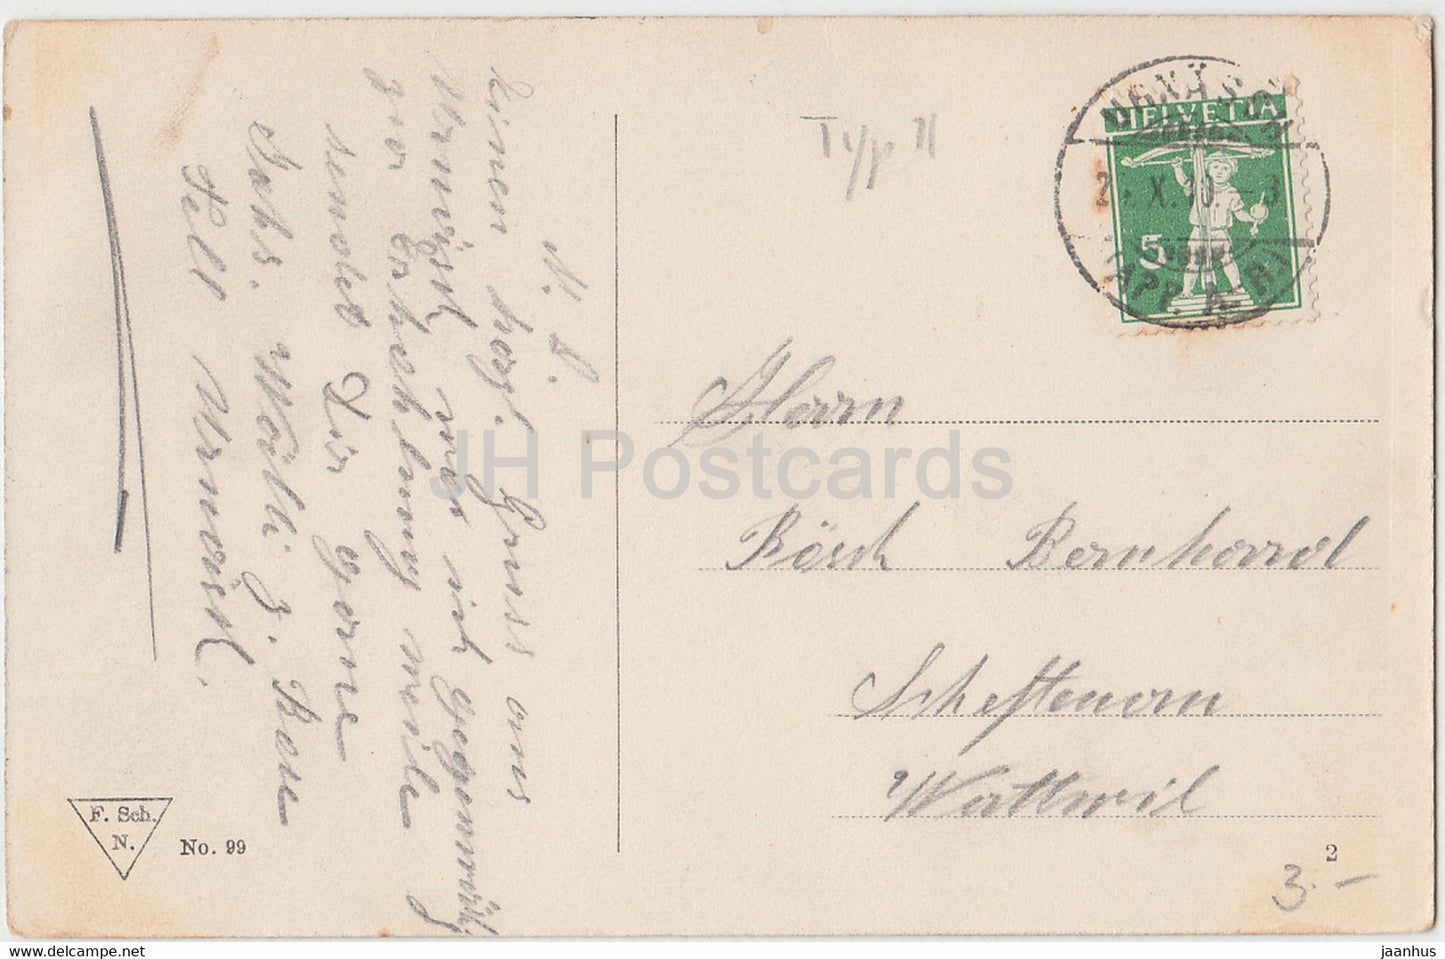 N. L.
Einen herzl. Gruss aus
Urnäsch wo ich gegenwärtig
zur Erholung weile
sendet Dir gerne
Jakb. Wälli z. Rose
Urnäsch.
Typ II
HELVETIA
5
X. 10. -3
(APP. A. RH)
Herrn
Bösch Bernhard
Scheftenau
Wattwil
F. Sch.
N.
No. 99
2
3.-
JH Postcards
www.delcampe.net
jaanhus